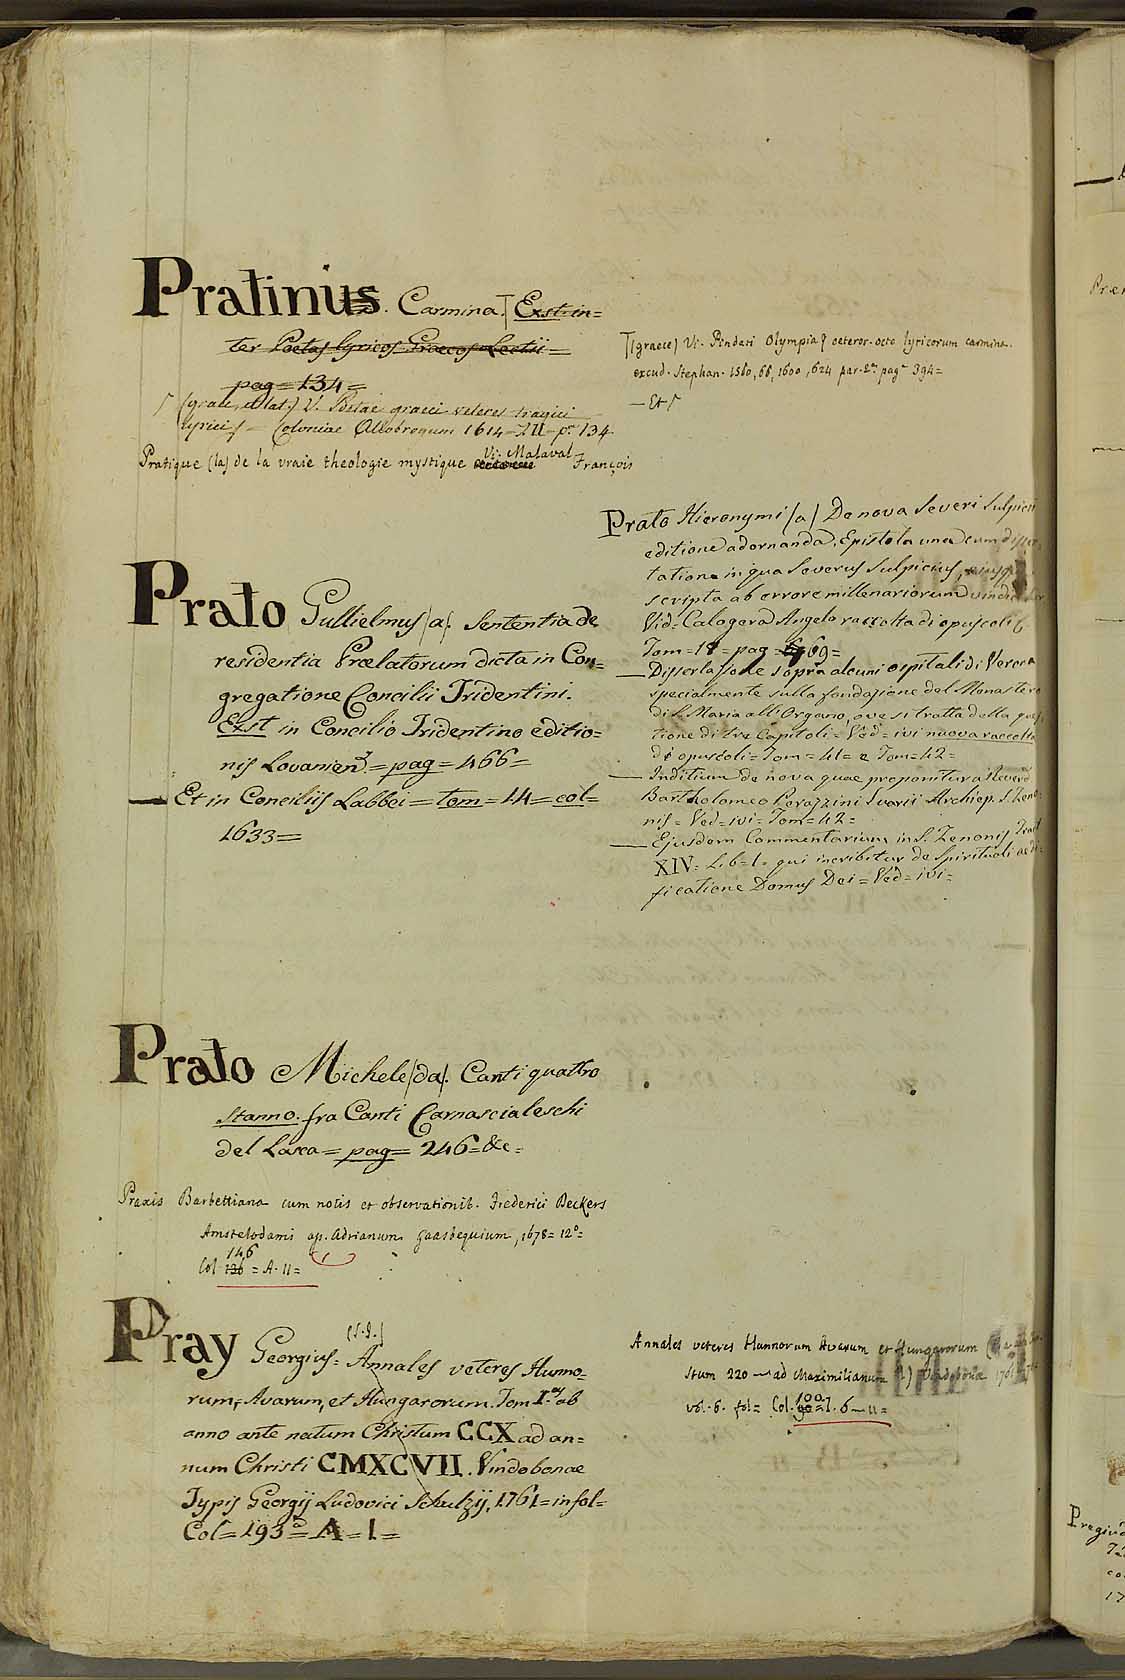 Pratinus. Carmina. Exst. in=
ter Poetas lyricos Graecos Lectii=
pag=134=
V. Poetae graeci veteres tragici
lyrici Coloniae Allobrogum 1614 p. 134
Pratique (la) de la vraie theologie mystique Vi. Malaval François
(graece) Vi. Pindari Olympia & ceteror. octo lyricorum carmina.
excud. Stephan. 1560, 66, 1600, 624 par. 2.ª pag.ª 394=
— Et
Prato Gullielmus (a). Sententia de
residentia Prælatorum dicta in Con=
gregatione Concilii Tridentini.
Exst in Concilio Tridentino editio=
nis Lovanien = pag = 466=
— Et in Conciliis Labbei = tom = 14 = col=
1633=
Prato Hieronymi (a) De nova Severi Sulpicii
editione adornanda, Epistola una cum
tatione in qua Severus Sulpicius,
scripta ab errore millenariorum
Vid= Calogera Angelo raccolta di opuscoli
Tom=18= pag = 69=
— Dissertazione sopra alcuni ospitali di Verona
specialmente sulla fondazione del Monastero
di S. Maria all' Organo, ove si tratta della
tione di tre Capitoli= Ved= ivi nuova raccolta
di opuscoli= Tom= 41= e Tom=42=
— Inditium de nova quae proponitur a Reverd.
Bartholomeo Perazzini Archiep. S. Zeno=
nis= Ved= ivi= Tom=42=
— Ejusdem Commentarium in S. Zenonis Tract
XIV= Lib=I. qui inscribitur de Spirituali aedi=
ficatione Domus Dei= Ved= ivi=
Prato Michele (da). Canti quattro
Stanno. fra Canti Carnascialeschi
del Lasca= pag= 246=&c=
Praxis Barbettiana cum notis et observationib. Frederici Deckers
Amstelodami ap. Adrianum Gaasbequium, 1678= 12º=
146
Col. 136 = A. 11=
(S.J.)
Pray Georgius= Annales veteres Hunno=
rum, Avarum, et Hungarorum. Tom I.us ab
anno ante natum Christum CCX ad an=
num Christi CMXCVII. Vindobonae
Typis Georgij Ludovici Schulzij, 1761= in fol=
Col= 193= A= I=
Annales veteres Hunnorum Avarum et Hungarorum
stum 220 — ad Maximilianum Vindobonæ
100
vol. 6. fol= Col. 90= I. 6 — 11=